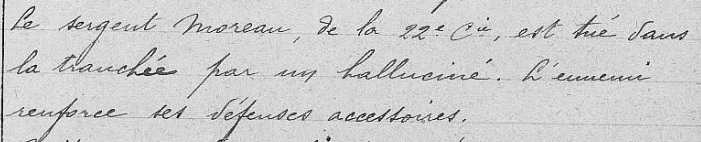 Le sergent Moreau, de la 22e Cie, est tué dans
la tranchée par un halluciné. L'ennemi
renforce ses défenses accessoires.